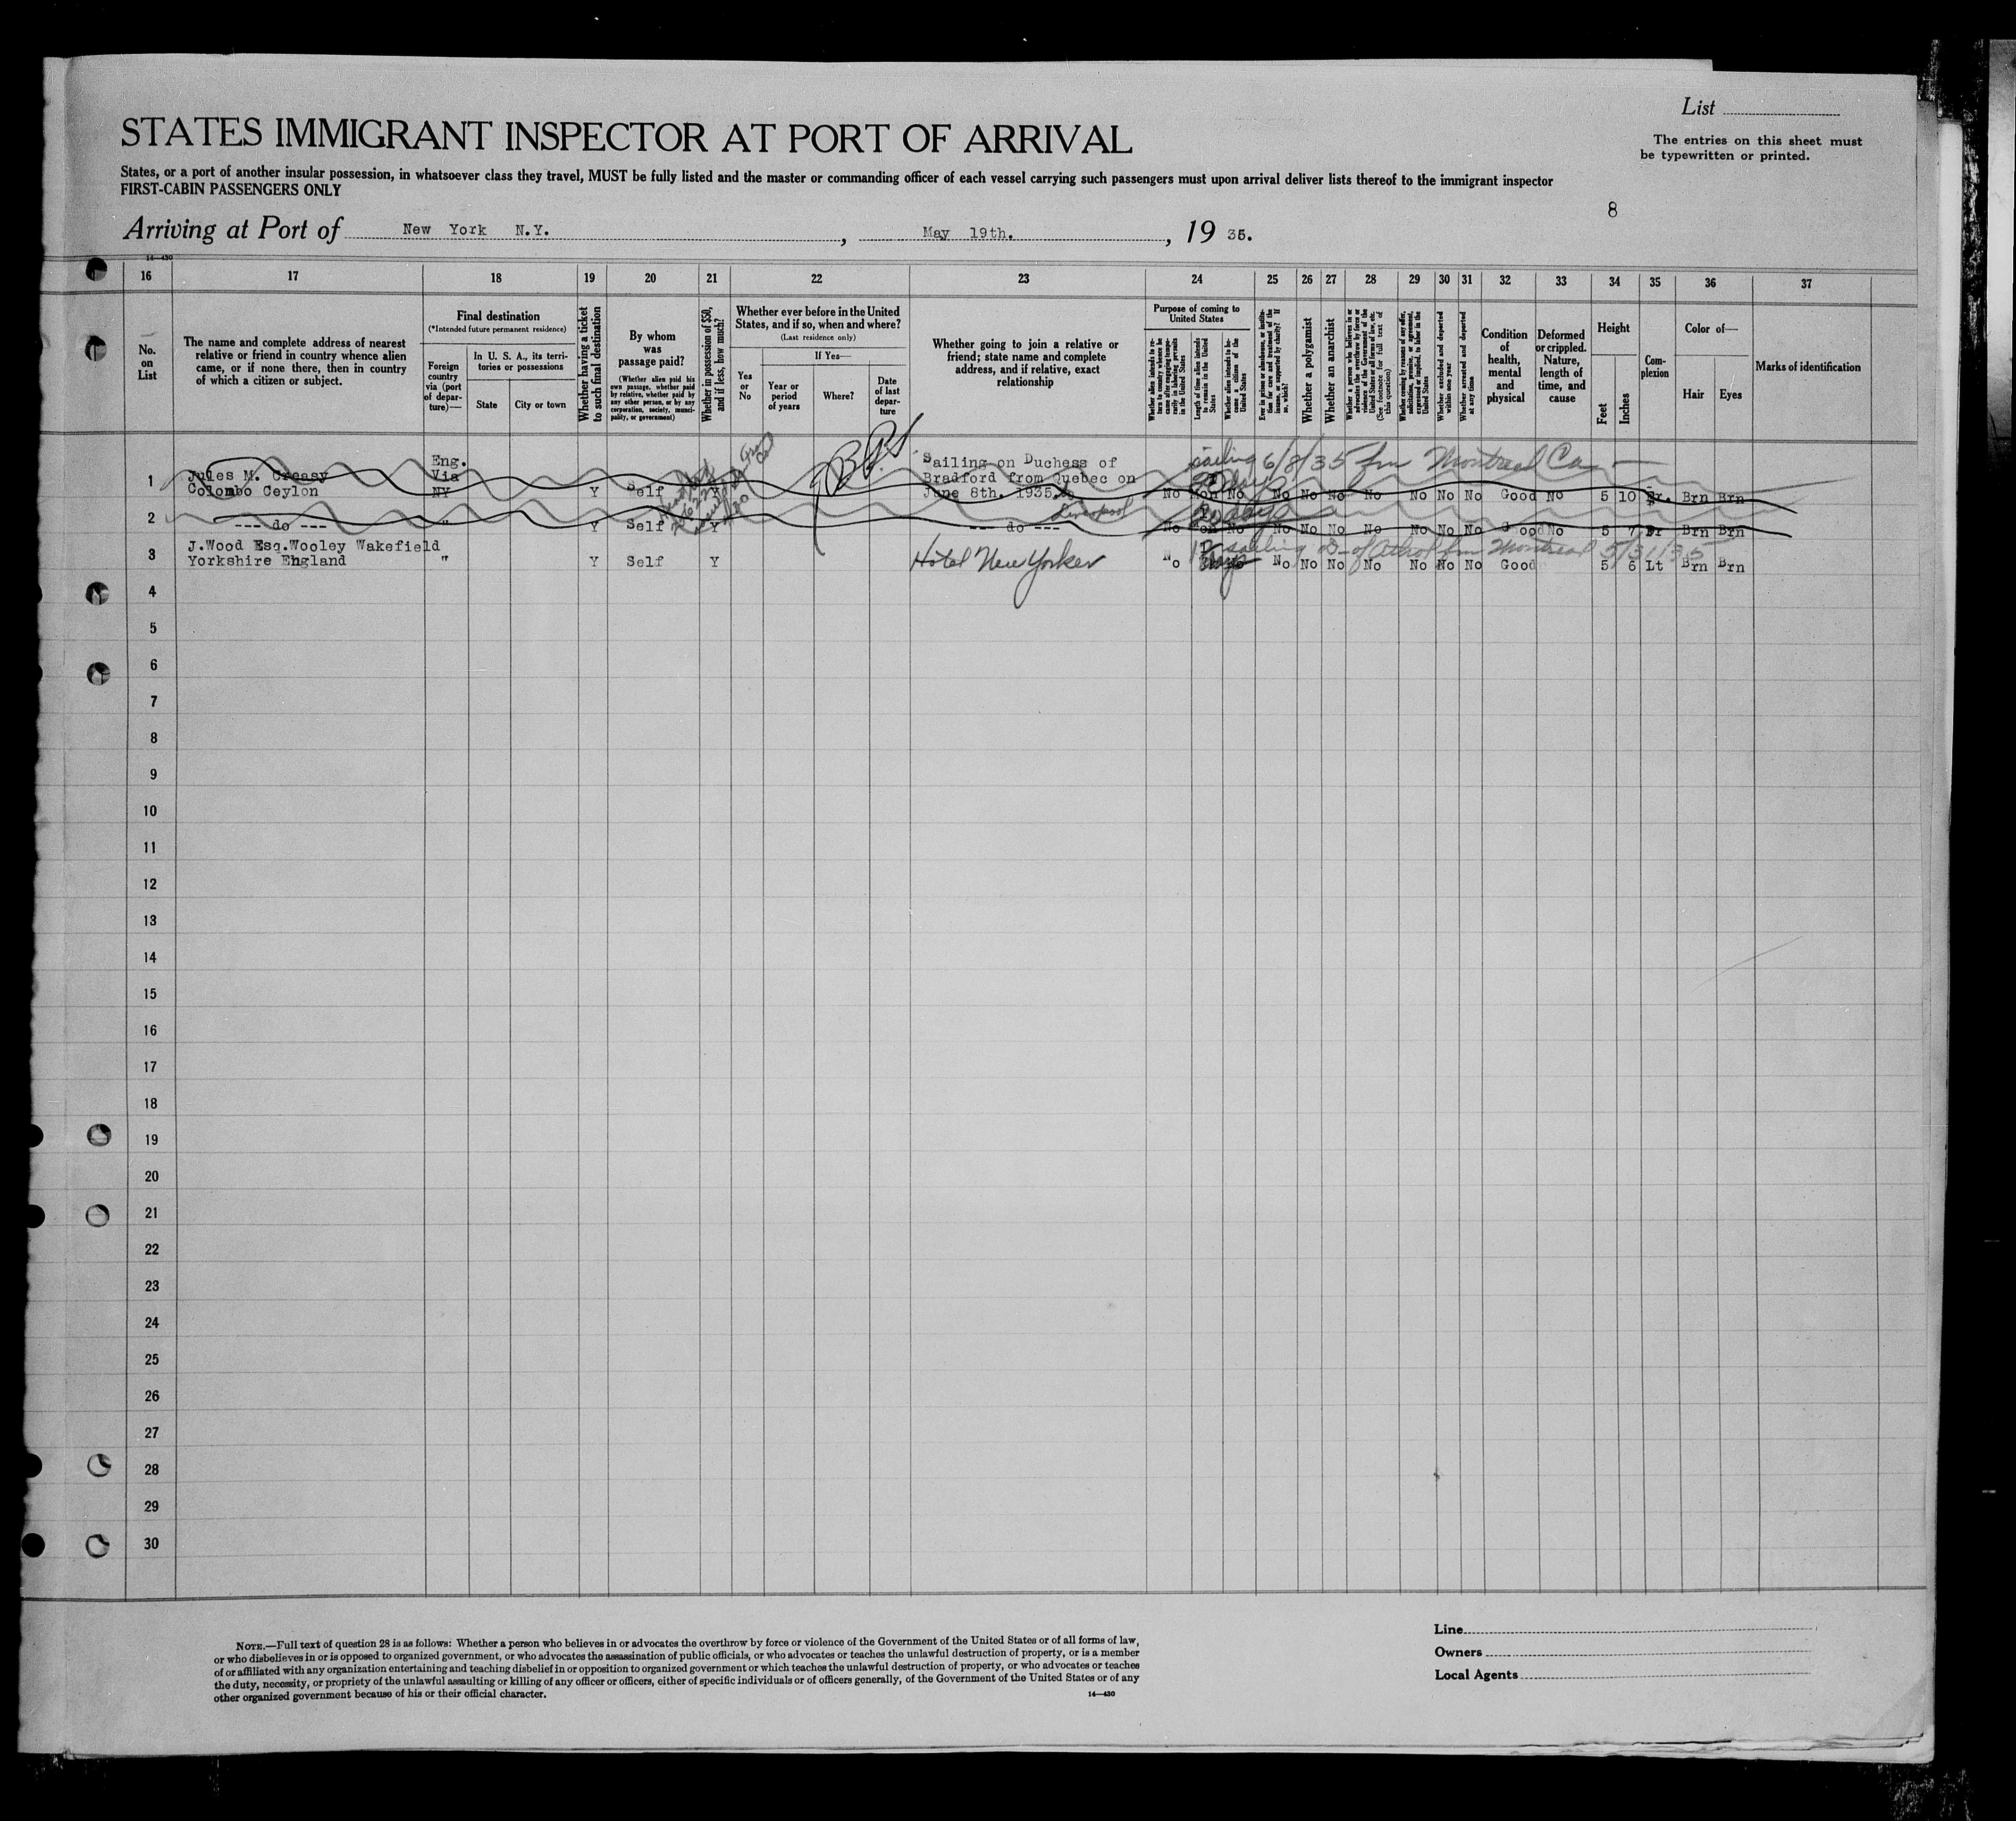 List
STATES IMMIGRANT INSPECTOR AT PORT OF ARRIVAL
The entries on this sheet must
be typewritten or printed.
States, or a port of another insular possession, in whatsoever class they travel, MUST be fully listed and the master or commanding officer of each vessel carrying such passengers must upon arrival deliver lists thereof to the immigrant inspector
FIRST-CABIN PASSENGERS ONLY
8
Arriving at Port of New York N.Y. , May 19th. , 19 35.
14—430
16 17 18 19 20 21 22 23 24 25 26 27 28 29 30 31 32 33 34 35 36 37
No.
on
List
The name and complete address of nearest
relative or friend in country whence alien
came, or if none there, then in country
of which a citizen or subject.
Final destination
(*Intended future permanent residence)
Foreign
country
via (port
of depar-
ture)—
In U. S. A., its terri-
tories or possessions
State
City or town
Whether having a ticket
to such final destination
By whom
was
passage paid?
(Whether alien paid his
own passage, whether paid
by relative, whether paid by
any other person, or by any
corporation, society, munici-
pality, or government)
Whether in possession of $50,
and if less, how much?
Whether ever before in the United
States, and if so, when and where?
(Last residence only)
Yes
or
No
If Yes—
Year or
period
of years
Where?
Date
of last
depar-
ture
Whether going to join a relative or
friend; state name and complete
address, and if relative, exact
relationship
Purpose of coming to
United States
Whether alien intends to re-
turn to country whence he
came after engaging tempo-
rarily in laboring pursuits
in the United States
Length of time alien intends
to remain in the United
States
Whether alien intends to be-
come a citizen of the
United States
Ever in prison or almshouse, or institu-
tion for care and treatment of the
insane, or supported by charity? If
so, which?
Whether a polygamist
Whether an anarchist
Whether a person who believes in or
advocates the overthrow by force or
violence of the Government of the
United States or all forms of law, etc.
(See footnote for full text of
this question)
Whether coming by reason of any offer,
solicitation, promise, or agreement,
expressed or implied, to labor in the
United States
Whether excluded and deported
within one year
Whether arrested and deported
at any time
Condition
of
health,
mental
and
physical
Deformed
or crippled.
Nature,
length of
time, and
cause
Height
Feet
Inches
Com-
plexion
Color of—
Hair
Eyes
Marks of identification
sailing 6/8/35 fm Montreal Ca
1 Jules M. Creasy Eng. Sailing on Duchess of
Colombo Ceylon Via Bradford from Quebec on
NY Y Self Y June 8th. 1935. No No No No No No No No No Good No 5 10 Br. Brn Brn
Liverpool
2 --- do --- " Y Self Y --- do --- No No No No No No No No No Good No 5 7 Br Brn Brn
3 J.Wood Esq.Wooley Wakefield sailing D- of Athol fm Montreal 5/31/35
Yorkshire England " Y Self Y Hotel New Yorker No No No No No No No No Good 5 6 Lt Brn Brn
4
5
6
7
8
9
10
11
12
13
14
15
16
17
18
19
20
21
22
23
24
25
26
27
28
29
30
NOTE.—Full text of question 28 is as follows: Whether a person who believes in or advocates the overthrow by force or violence of the Government of the United States or of all forms of law,
or who disbelieves in or is opposed to organized government, or who advocates the assassination of public officials, or who advocates or teaches the unlawful destruction of property, or is a member
of or affiliated with any organization entertaining and teaching disbelief in or opposition to organized government or which teaches the unlawful destruction of property, or who advocates or teaches
the duty, necessity, or propriety of the unlawful assaulting or killing of any officer or officers, either of specific individuals or of officers generally, of the Government of the United States or of any
other organized government because of his or their official character.
14—430
Line
Owners
Local Agents